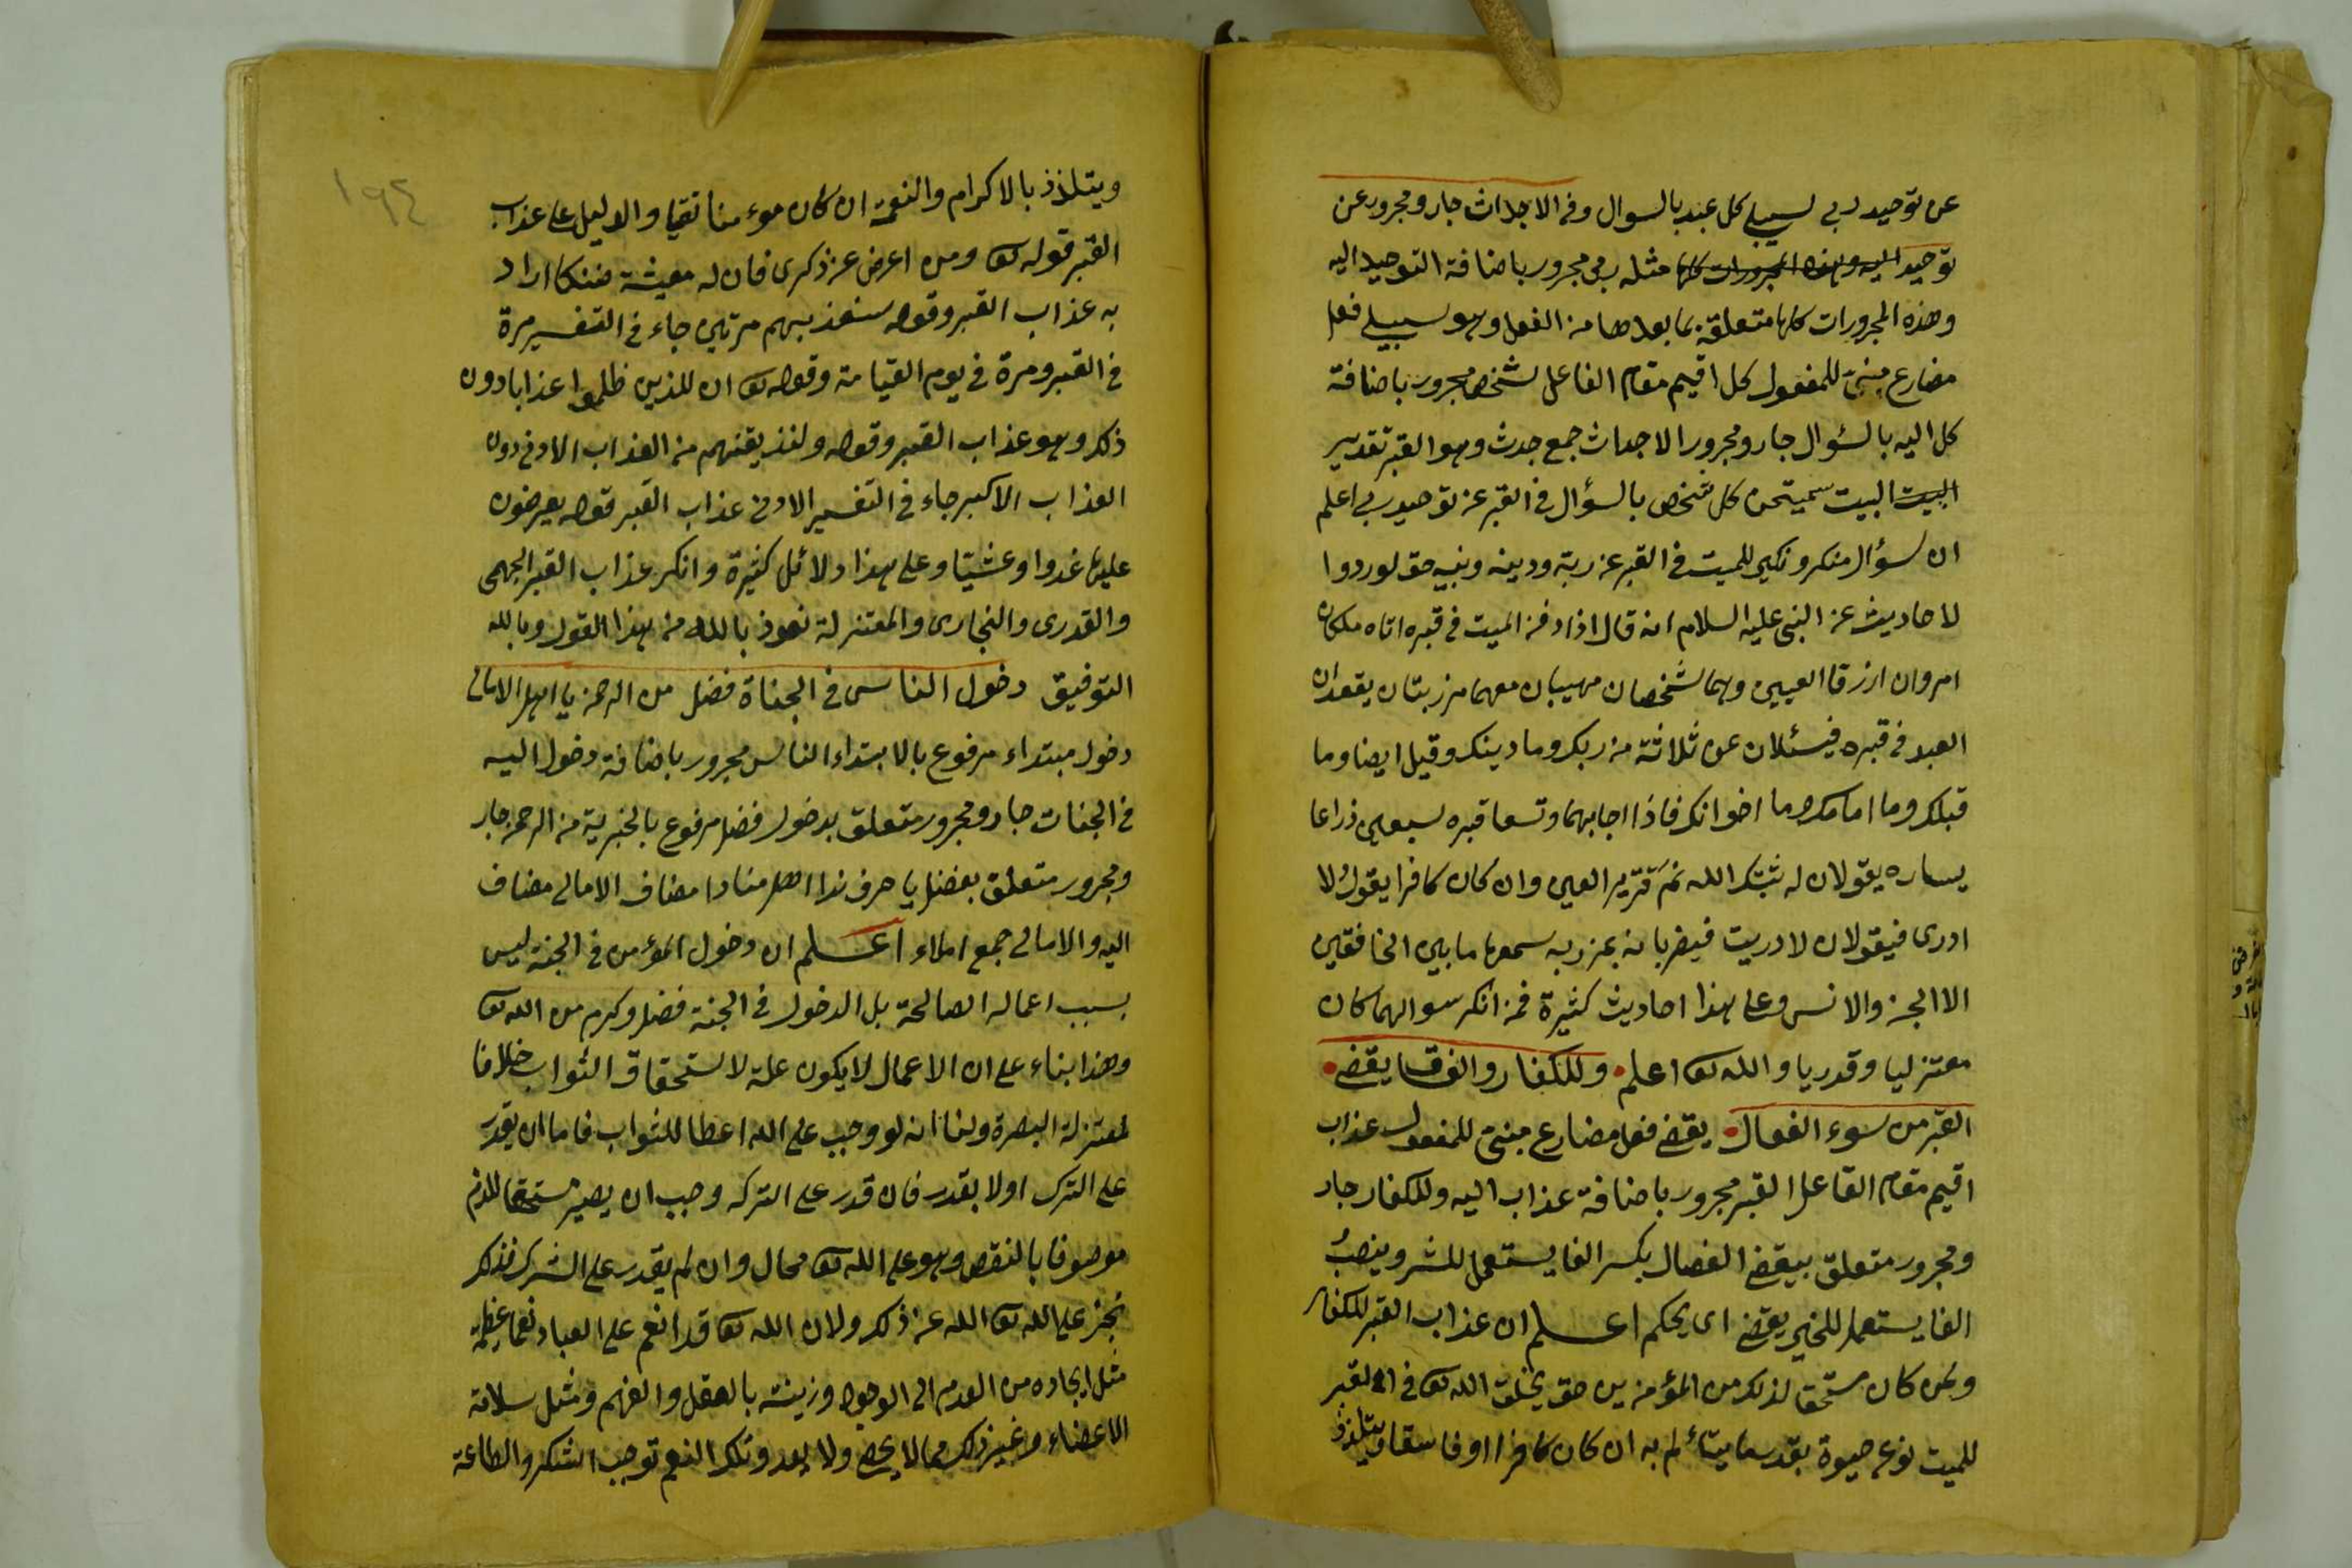 عن توحيد ربى سيبلى كل عبد بالسوال وفى الاجداث جار ومجرور عن
توحيد اليه وهذه المجرورات كلها مثله ربى مجرور باضافة التوحيد اليه
وهذه المجرورات كلها متعلقة بما بعدها من الفعل وهو سيبلى فعل
مضارع مبنى للمفعول كل اقيم مقام الفاعل شخص مجرور باضافة
كل اليه بالسؤال جار ومجرور الاجداث جمع جدث وهو القبر تقدير
البيت البيت سيمتحن كل شخص بالسؤال فى القبر عن توحيد ربى اعلم
ان سؤال منكر ونكير للميت فى القبر عن ربه ودينه ونبيه حق لوردوا
لاحاديث عن النبى عليه السلام انه قال اذا دفن الميت فى قبره اتاه ملكان
اسودان ازرقا العيين وهما شخصان مهيبان معهما مرزبتان يقعدان
العبد فى قبره فيسئلان عن ثلاثة من ربك وما دينك وقيل ايضا وما
قبلتك وما امامك وما اخوانك فاذا اجابهما وتسعا قبره سبعين ذراعا
يساره يقولان له ثبتك الله نم قرير العين وان كان كافرا يقول لا
ادرى فيقولان لا دريت فيضربانه بمرزبه سمعها ما بين الخافقين
الا الجن والانس وعلى هذا احاديث كثيرة فمن انكر سوالهما كان
معتزليا وقدريا والله تعا اعلم وللكفار والفساق يقضى
القبر من سوء الفعال يقضى فعل مضارع مبنى للمفعول عذاب
اقيم مقام الفاعل القبر مجرور باضافة عذاب اليه وللكفار جار
ومجرور متعلق بيقضى الفعال بكسر الفا يستعمل للشر وينصب
الفا يستعمل للخير يقضى اى يحكم اعلم ان عذاب القبر للكفار
ولمن كان مستحقا لذلك من المؤمنين حق يخلق الله تعا فى القبر
للميت نوع حيوة بقدر ما يتألم به ان كان كافرا او فاسقا ويتلذذ
ويتلذذ بالاكرام والنعمة ان كان مؤمنا تقيا والدليل على عذاب
القبر قوله تعا ومن اعرض عن ذكرى فان له معيشة ضنكا اراد
به عذاب القبر وقوله سنعذبهم مرتين جاء فى التفسير مرة
فى القبر ومرة فى يوم القيامة وقوله تعا ان للذين ظلموا عذابا دون
ذلك وهو عذاب القبر وقوله ولنذيقنهم من العذاب الادنى دون
العذاب الاكبر جاء فى التفسير الادنى عذاب القبر قوله يعرضون
عليها غدوا وعشيا وعلى هذا دلائل كثيرة وانكر عذاب القبر الجهمى
والقدرى والنجارى والمعتزلة نعوذ بالله من هذا القول وبالله
التوفيق دخول الناس فى الجناة فضل من الرحمن يا اهل الامالى
دخول مبتداء مرفوع بالابتداء الناس مجرور باضافة دخول اليه
فى الجنات جار ومجرور متعلق بدخول فضل مرفوع بالخبرية من الرحمن جار
ومجرور متعلق بفضل يا حرف ندا اهل منادا مضاف الامالى مضاف
اليه والامالى جمع املاء اعلم ان دخول المؤمن فى الجنة ليس
بسبب اعماله الصالحة بل الدخول فى الجنة فضل وكرم من الله تعا
وهذا بناء على ان الاعمال لا يكون علة لاستحقاق الثواب خلافا
لمعتزلة البصرة ولنا انه لو وجب على الله اعطا للثواب فاما ان يقدر
على الترك اولا يقدر فان قدر على التركه وجب ان يصير مستحقا للذم
موصوفا بالنقص وهو على الله تعا محال وان لم يقدر على الترك فذلك
عجز على الله تعا الله عن ذلك ولان الله تعا قد انعم على العباد نعما عظيمة
مثل ايجاده من العدم الى الوجود وزينته بالعقل والفهم ومثل سلامة
الاعضاء وغير ذلك مما لا يحصى ولا يعد وتلك النعم توجب الشكر والطاعة
١٩٤